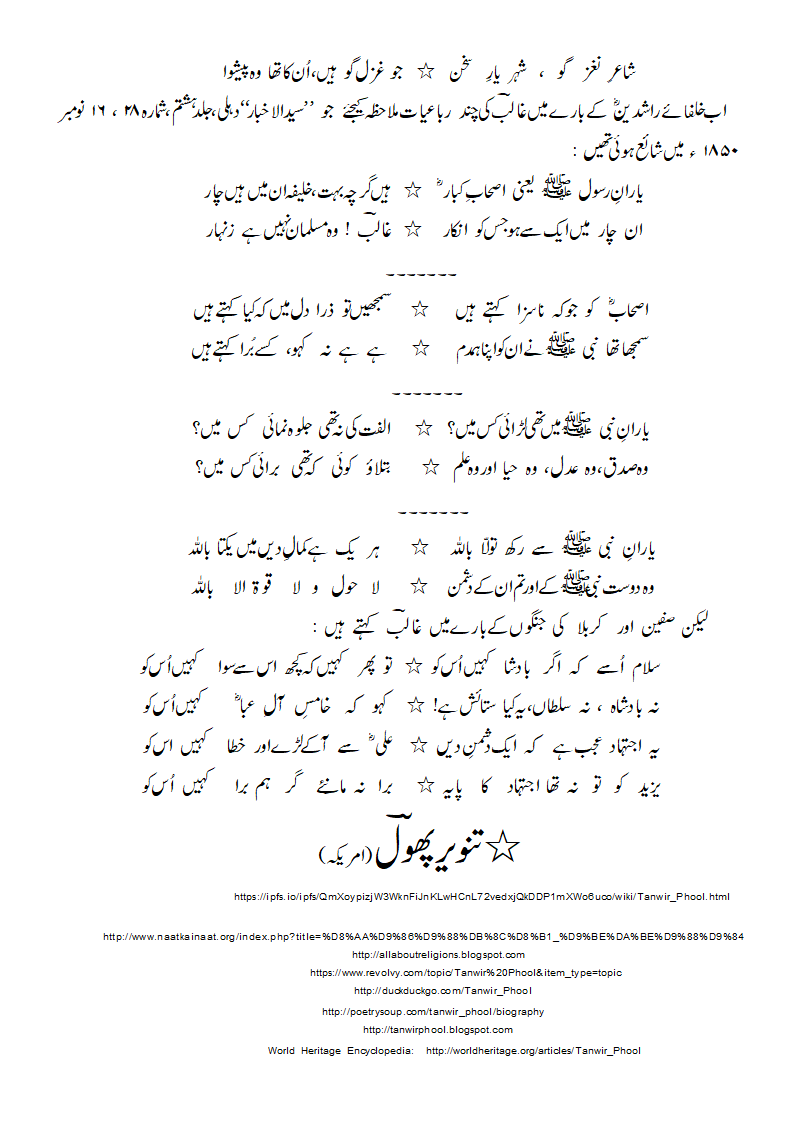 شاعر نغز گو ، شہر یارِ سخن ☆ جو غزل گو ہیں، اُن کا تھا وہ پیشوا
اب خلفائے راشدینؓ کے بارے میں غالبؔ کی چند رباعیات ملاحظہ کیجئے جو ’’سیدالاخبار‘‘ دہلی، جلد ہشتم، شمارہ ۲۸ ، ۱۶ نومبر
۱۸۵۰ ء میں شائع ہوئی تھیں :
یارانِ رسول ﷺ یعنی اصحابِ کبارؓ ☆ ہیں گرچہ بہت، خلیفہ ان میں ہیں چار
ان چار میں ایک سے ہو جس کو انکار ☆ غالبؔ ! وہ مسلمان نہیں ہے زنہار
-------
اصحابؓ کو جو کہ ناسزا کہتے ہیں ☆ سمجھیں تو ذرا دل میں کہ کیا کہتے ہیں
سمجھا تھا نبی ﷺ نے ان کو اپنا ہمدم ☆ ہے ہے نہ کہو، کسے بُرا کہتے ہیں
-------
یارانِ نبی ﷺ میں تھی لڑائی کس میں؟ ☆ الفت کی نہ تھی جلوہ نمائی کس میں؟
وہ صدق، وہ عدل، وہ حیا اور وہ علم ☆ بتلاؤ کوئی کہ تھی برائی کس میں؟
-------
یارانِ نبی ﷺ سے رکھ تولّا باللہ ☆ ہر یک ہے کمالِ دیں میں یکتا باللہ
وہ دوست نبی ﷺ کے اور تم ان کے دشمن ☆ لا حول و لا قوۃ الا باللہ
لیکن صفین اور کربلا کی جنگوں کے بارے میں غالبؔ کہتے ہیں :
سلام اُسے کہ اگر بادشا کہیں اُس کو ☆ تو پھر کہیں کہ کچھ اس سے سوا کہیں اُس کو
نہ بادشاہ ، نہ سلطاں، یہ کیا ستائش ہے! ☆ کہو کہ خامسِ آلِ عباؓ کہیں اُس کو
یہ اجتہاد عجب ہے کہ ایک دشمنِ دیں ☆ علیؓ سے آکے لڑے اور خطا کہیں اس کو
یزید کو تو نہ تھا اجتہاد کا پایہ ☆ برا نہ مانئے گر ہم برا کہیں اُس کو
☆ تنویر پھولؔ (امریکہ)
https://ipfs.io/ipfs/QmXoypizjW3WknFiJnKLwHCnL72vedxjQkDDP1mXWo6uco/wiki/Tanwir_Phool.html
http://www.naatkainaat.org/index.php?title=%D8%AA%D9%86%D9%88%DB%8C%D8%B1_%D9%BE%DA%BE%D9%88%D9%84
http://allaboutreligions.blogspot.com
https://www.revolvy.com/topic/Tanwir%20Phool&item_type=topic
http://duckduckgo.com/Tanwir_Phool
http://poetrysoup.com/tanwir_phool/biography
http://tanwirphool.blogspot.com
World Heritage Encyclopedia: http://worldheritage.org/articles/Tanwir_Phool